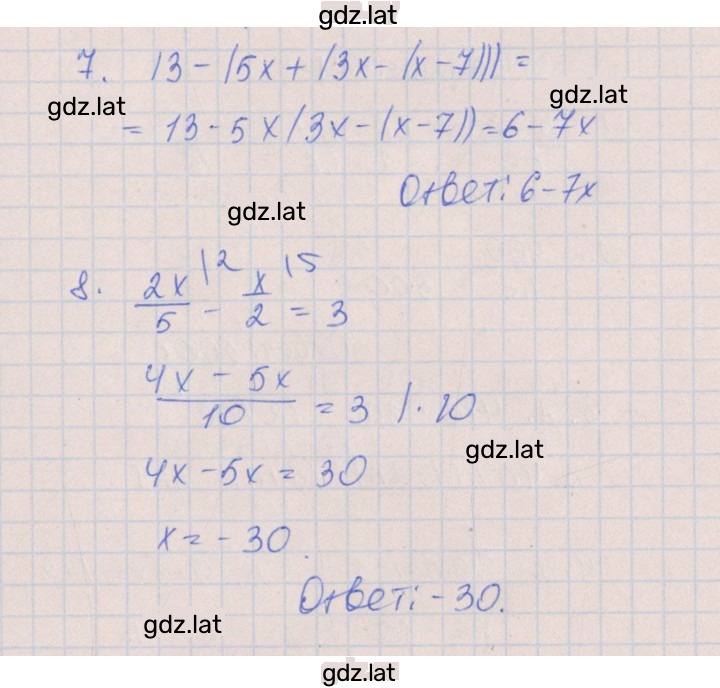 gdz.lat
7. 13 - (5x + (3x - (x - 7))) =
gdz.lat gdz.lat
= 13 - 5x(3x - (x - 7)) = 6 - 7x
Ответ: 6 - 7x
gdz.lat
8. 2x/5 |2 - x/2 |5 = 3
(4x - 5x)/10 = 3 | · 10
gdz.lat
4x - 5x = 30
x = - 30.
Ответ: - 30.
gdz.lat
gdz.lat